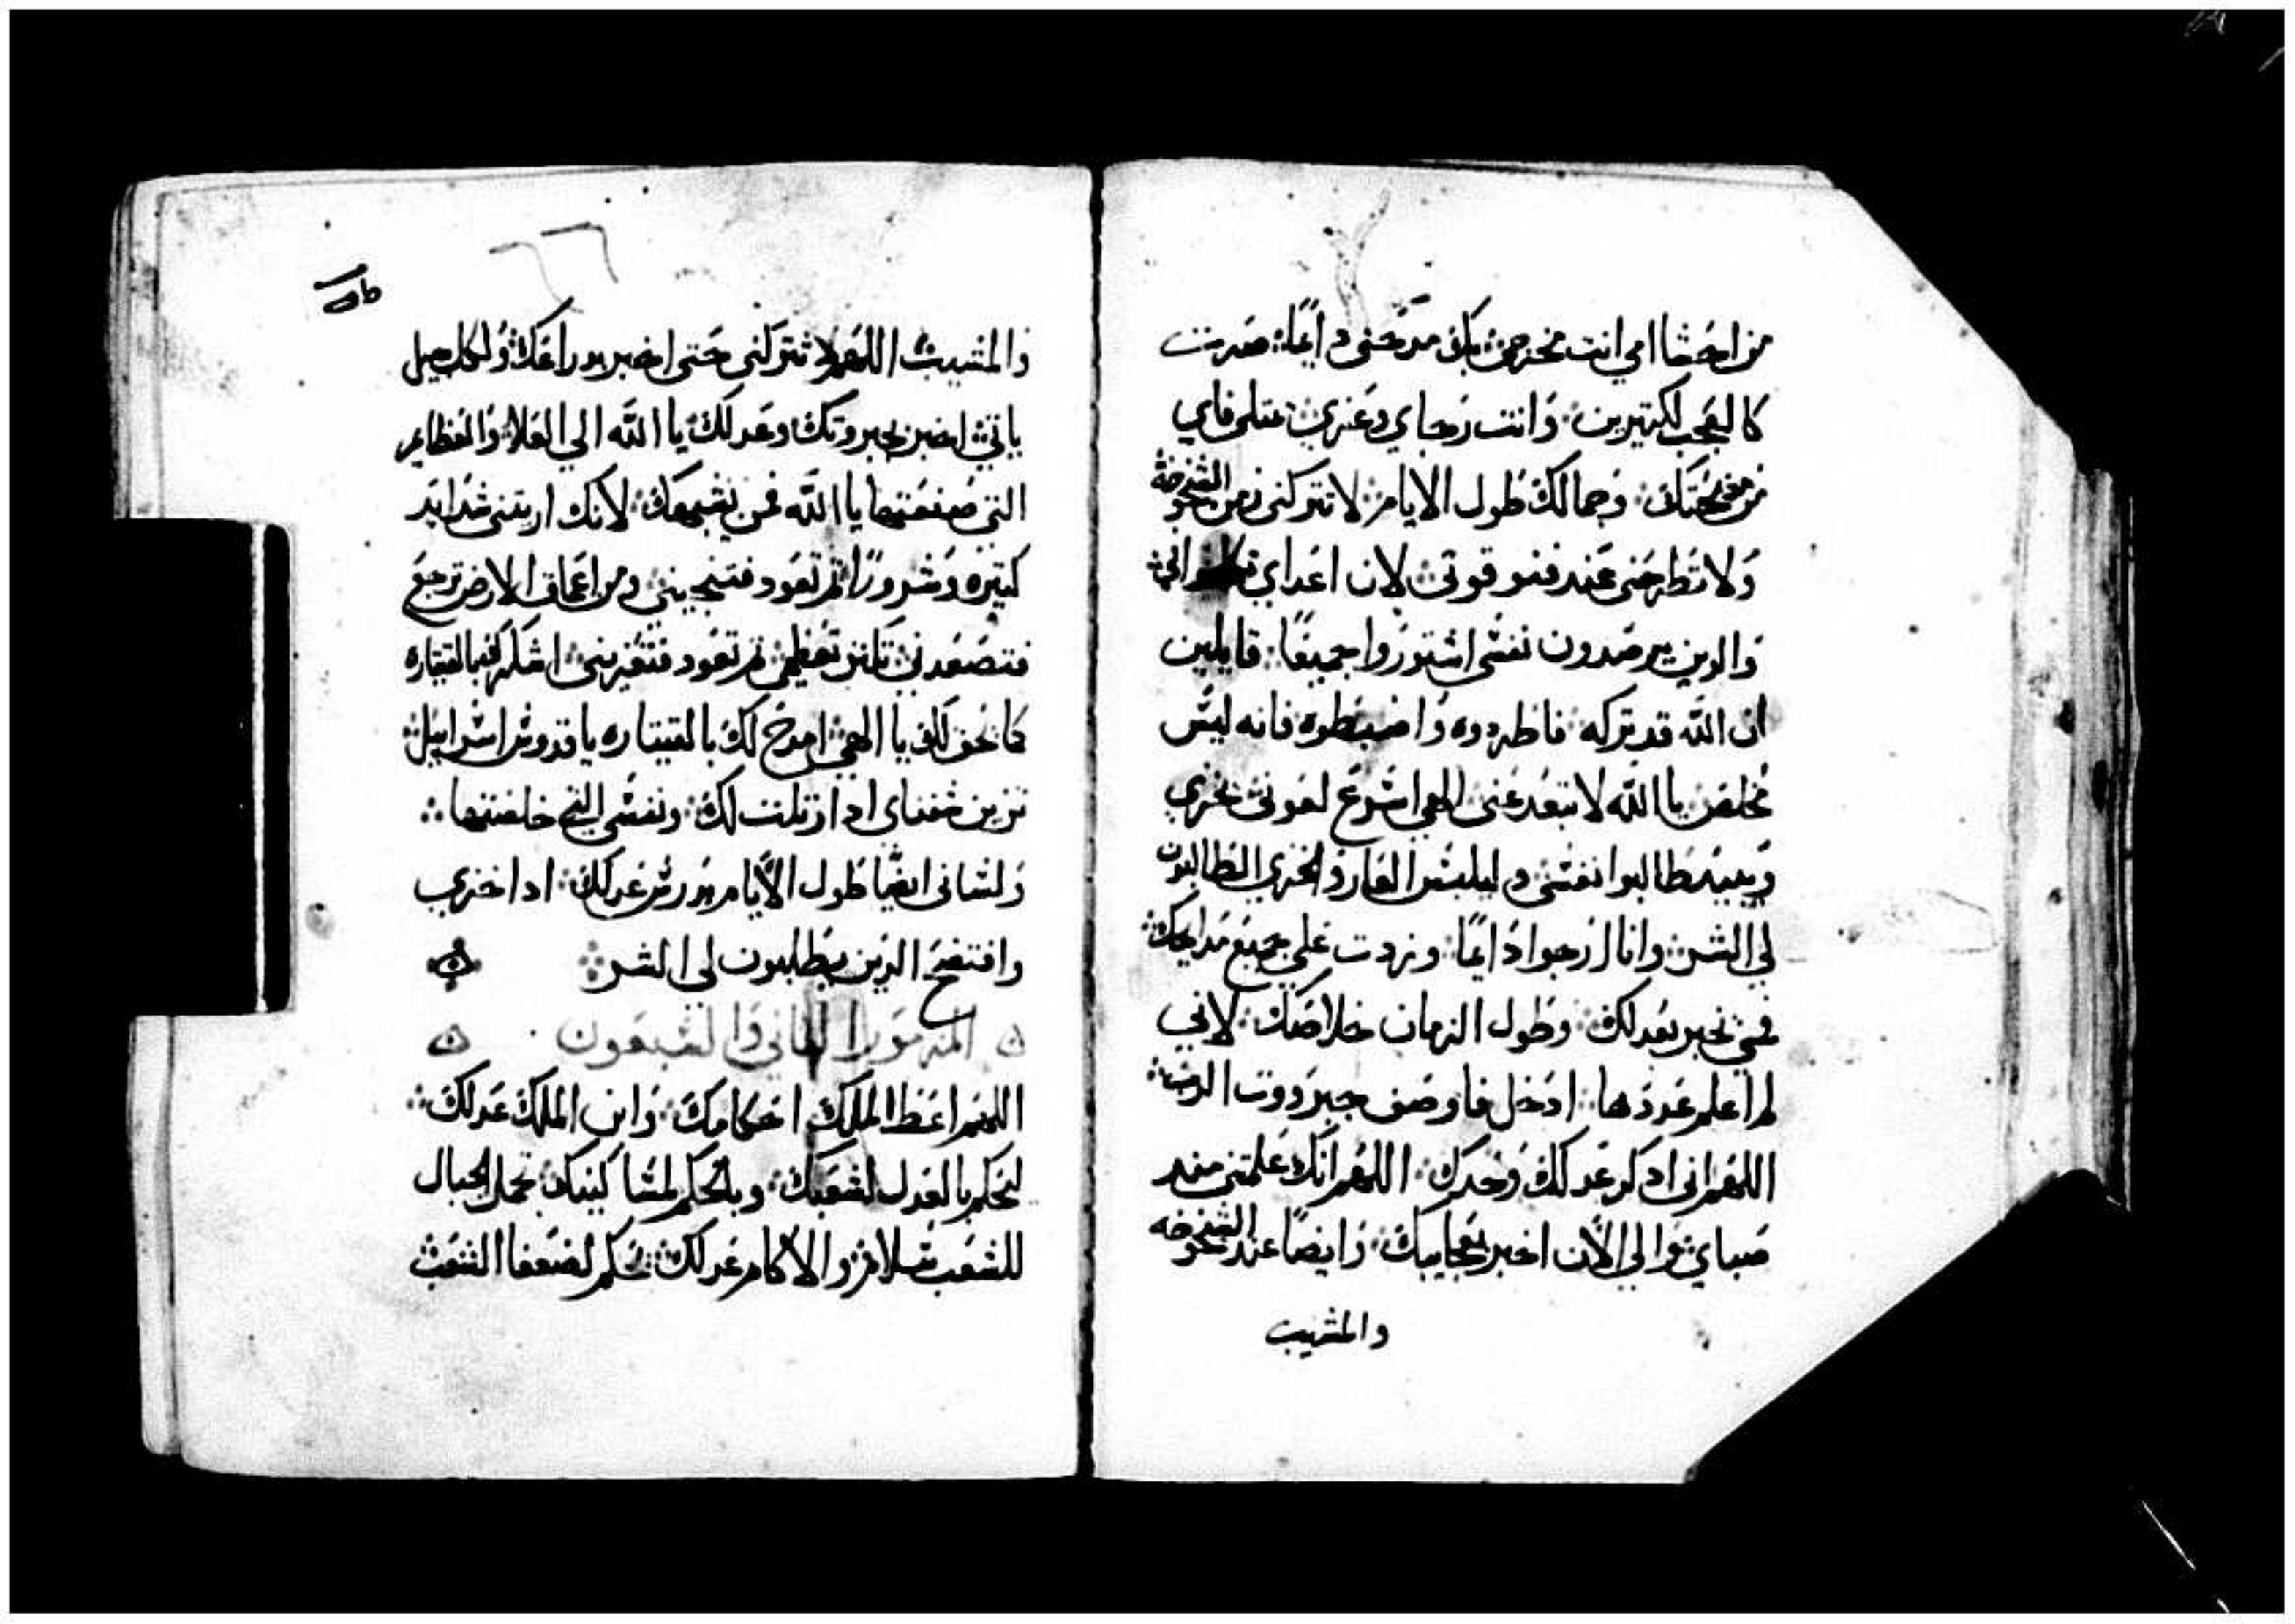 من احشا امي انت مخرجي بك مدحتي دايما صرت
كالعجب لكتيرين وانت رجاي وعزي يمتلي فاي
من مدحتك وجمالك طول الايام لا تتركني زمن الشيخوخة
ولا تطرحني عند فنو قوتي لان اعداي
والدين يرصدون نفسي استوروا جميعا قايلين
ان الله قد تركه فاطردوه واضبطوه فانه ليس
مخلص يا الله لا تبعد عني الهي اسرع لعوني يخزي
ويبيد طالبوا نفسي وليلبس العار والخزي الطالبون
لي الشر وانا ارجوا دايما وزدت علي جميع مدايحك
فمي يخبر بعدلك وطول الزمان خلاصك لاني
لم اعلم عددها ادخل فاوصف جبروت الرب
اللهم اني ادكر عدلك وحدك اللهم انك علمتني مند
صباي والي الان اخبر بعجايبك وايضا عند الشيخوخه
والمشيب
والمشيب اللهم لا تتركني حتى اخبر بدراعك ولكل جيل
ياتي اخبر بجبروتك وعدلك يا الله الي العلا والعظايم
التي صنعتها يا الله فمن يشبهك لانك اريتني شدايد
كتيره وشرورا ثم تعود فتنجيني ومن اعماق الارض ترجع
فتصعدني تكتر تعظمي ثم تعود فتعزيني اشكرك بالقيتاره
كالحق لك يا الهي امدح لك بالقيتاره يا قدوس اسراييل
تزين شفتاي ادا رتلت لك ونفسي التي خلصتها
ولساني ايضا طول الايام يدرس عدلك ادا خزي
وافتضح الذين يطلبون لي الشر
المزمور الثاني والسبعون
اللهم اعط الملك احكامك وابن الملك عدلك
ليحكم بالعدل لشعبك وبالحكم لمساكينك تحمل الجبال
للشعب سلامة والاكام عدلك يحكم لضعفا الشعب